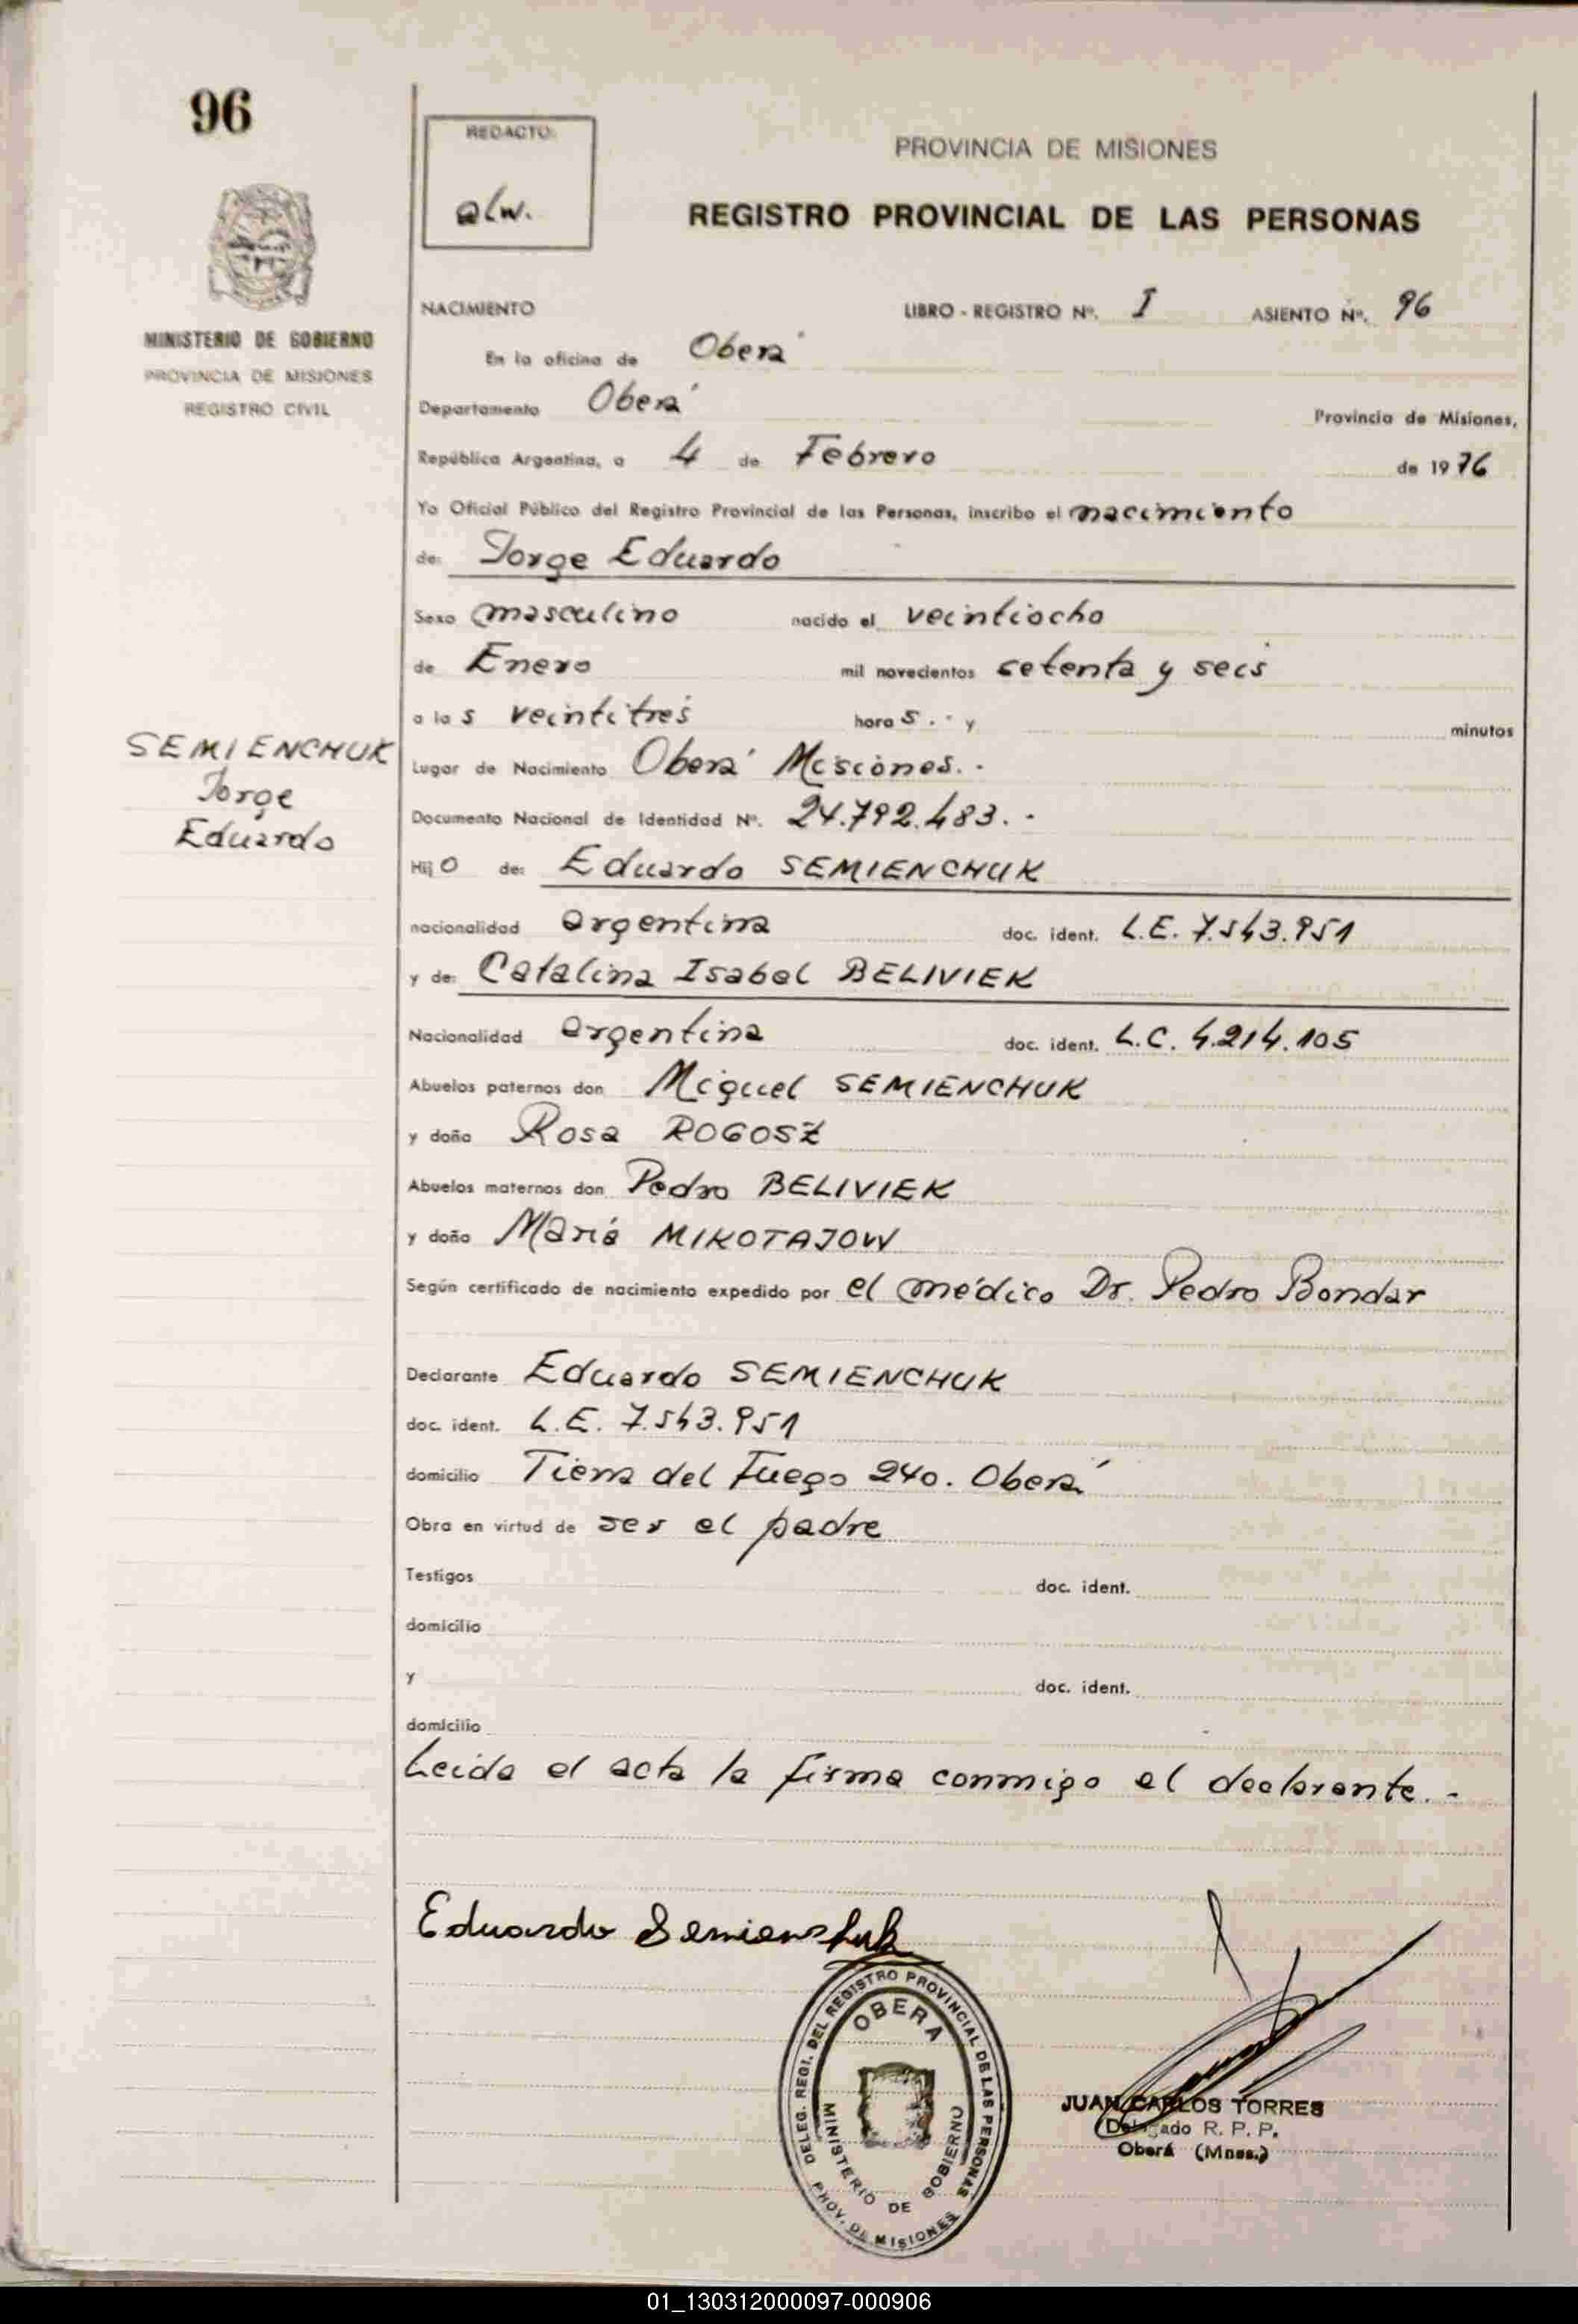 96
REDACTO:
alw.
PROVINCIA DE MISIONES
REGISTRO PROVINCIAL DE LAS PERSONAS
MINISTERIO DE GOBIERNO
PROVINCIA DE MISIONES
REGISTRO CIVIL
NACIMIENTO LIBRO - REGISTRO Nº. I ASIENTO Nº. 96
En la oficina de Oberá
Departamento Oberá Provincia de Misiones,
República Argentina, a 4 de Febrero de 1976
Yo Oficial Público del Registro Provincial de las Personas, inscribo el nacimiento
de: Jorge Eduardo
Sexo masculino nacido el veintiocho
de Enero mil novecientos setenta y seis
a las veintitres horas.- y minutos
SEMIENCHUK
Jorge
Eduardo
Lugar de Nacimiento Oberá Misiones.-
Documento Nacional de Identidad Nº. 24.792.483.-
Hijo de: Eduardo SEMIENCHUK
nacionalidad argentina doc. ident. L.E. 7.543.951
y de: Catalina Isabel BELIVIEK
Nacionalidad argentina doc. ident. L.C. 4.214.105
Abuelos paternos don Miguel SEMIENCHUK
y doña Rosa ROGOSZ
Abuelos maternos don Pedro BELIVIEK
y doña María MIKOTAJOW
Según certificado de nacimiento expedido por el médico Dr. Pedro Bondar
Declarante Eduardo SEMIENCHUK
doc. ident. L.E. 7.543.951
domicilio Tierra del Fuego 240. Oberá
Obra en virtud de ser el padre
Testigos doc. ident.
domicilio
y doc. ident.
domicilio
Leida el acta la firma conmigo el declarante.-
Eduardo Semienchuk
DELEG. REGI. DEL REGISTRO PROVINCIAL DE LAS PERSONAS
OBERA
MINISTERIO DE GOBIERNO
PROV. DE MISIONES
JUAN CARLOS TORRES
Delegado R. P. P.
Oberá (Mnes.)
01_130312000097-000906